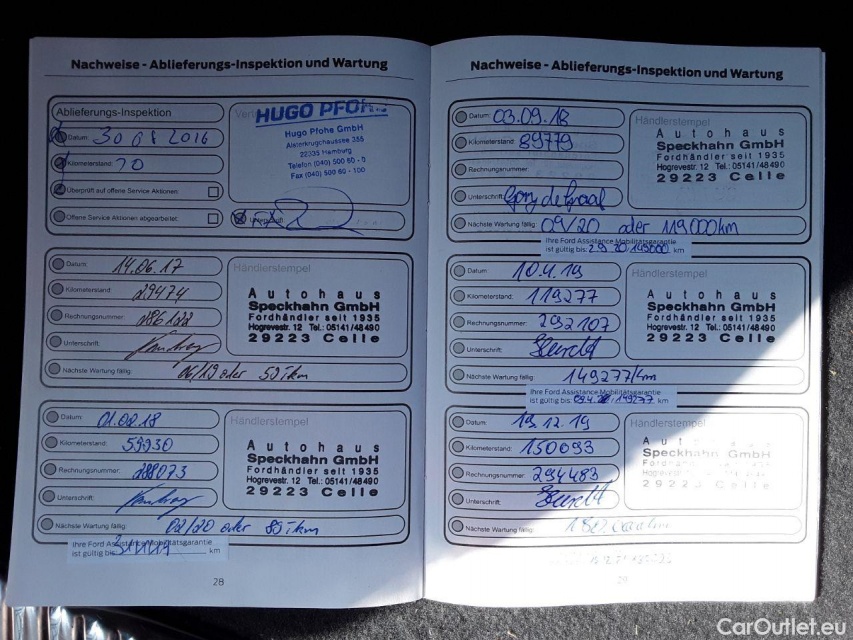 Nachweise - Ablieferungs-Inspektion und Wartung
Ablieferungs-Inspektion
Datum: 30 08 2016
Kilometerstand: 70
Überprüft auf offene Service Aktionen:
Offene Service Aktionen abgearbeitet:
HUGO PFOHE
Hugo Pfohe GmbH
Alsterkrugchaussee 355
22335 Hamburg
Telefon (040) 500 60 - 0
Fax (040) 500 60 - 100
Datum: 14.06.17
Kilometerstand: 29474
Rechnungsnummer: 286122
Unterschrift:
Nächste Wartung fällig: 06/19 oder
Händlerstempel
Autohaus
Speckhahn GmbH
Fordhändler seit 1935
Hogrevestr. 12 Tel.: 05141/48490
29223 Celle
Datum: 01.02.18
Kilometerstand: 59930
Rechnungsnummer: 288073
Unterschrift:
Nächste Wartung fällig: 02/20 oder
Händlerstempel
Autohaus
Speckhahn GmbH
Fordhändler seit 1935
Hogrevestr. 12 Tel.: 05141/48490
29223 Celle
Ihre Ford Assistance Mobilitätsgarantie
ist gültig bis: km
28
Nachweise - Ablieferungs-Inspektion und Wartung
Datum: 03.09.18
Kilometerstand: 89779
Rechnungsnummer:
Unterschrift:
Nächste Wartung fällig: 09/20 oder 119000km
Händlerstempel
Autohaus
Speckhahn GmbH
Fordhändler seit 1935
Hogrevestr. 12 Tel.: 05141/48490
29223 Celle
Ihre Ford Assistance Mobilitätsgarantie
ist gültig bis: km
Datum: 10.4.19
Kilometerstand: 119277
Rechnungsnummer: 292107
Unterschrift:
Nächste Wartung fällig: 149277/km
Händlerstempel
Autohaus
Speckhahn GmbH
Fordhändler seit 1935
Hogrevestr. 12 Tel.: 05141/48490
29223 Celle
Ihre Ford Assistance Mobilitätsgarantie
ist gültig bis: 149277 km
Datum: 19.12.19
Kilometerstand: 150093
Rechnungsnummer: 294483
Unterschrift:
Nächste Wartung fällig:
Händlerstempel
Autohaus
Speckhahn GmbH
Fordhändler seit 1935
Hogrevestr. 12 Tel.: 05141/48490
29223 Celle
29
CarOutlet.eu